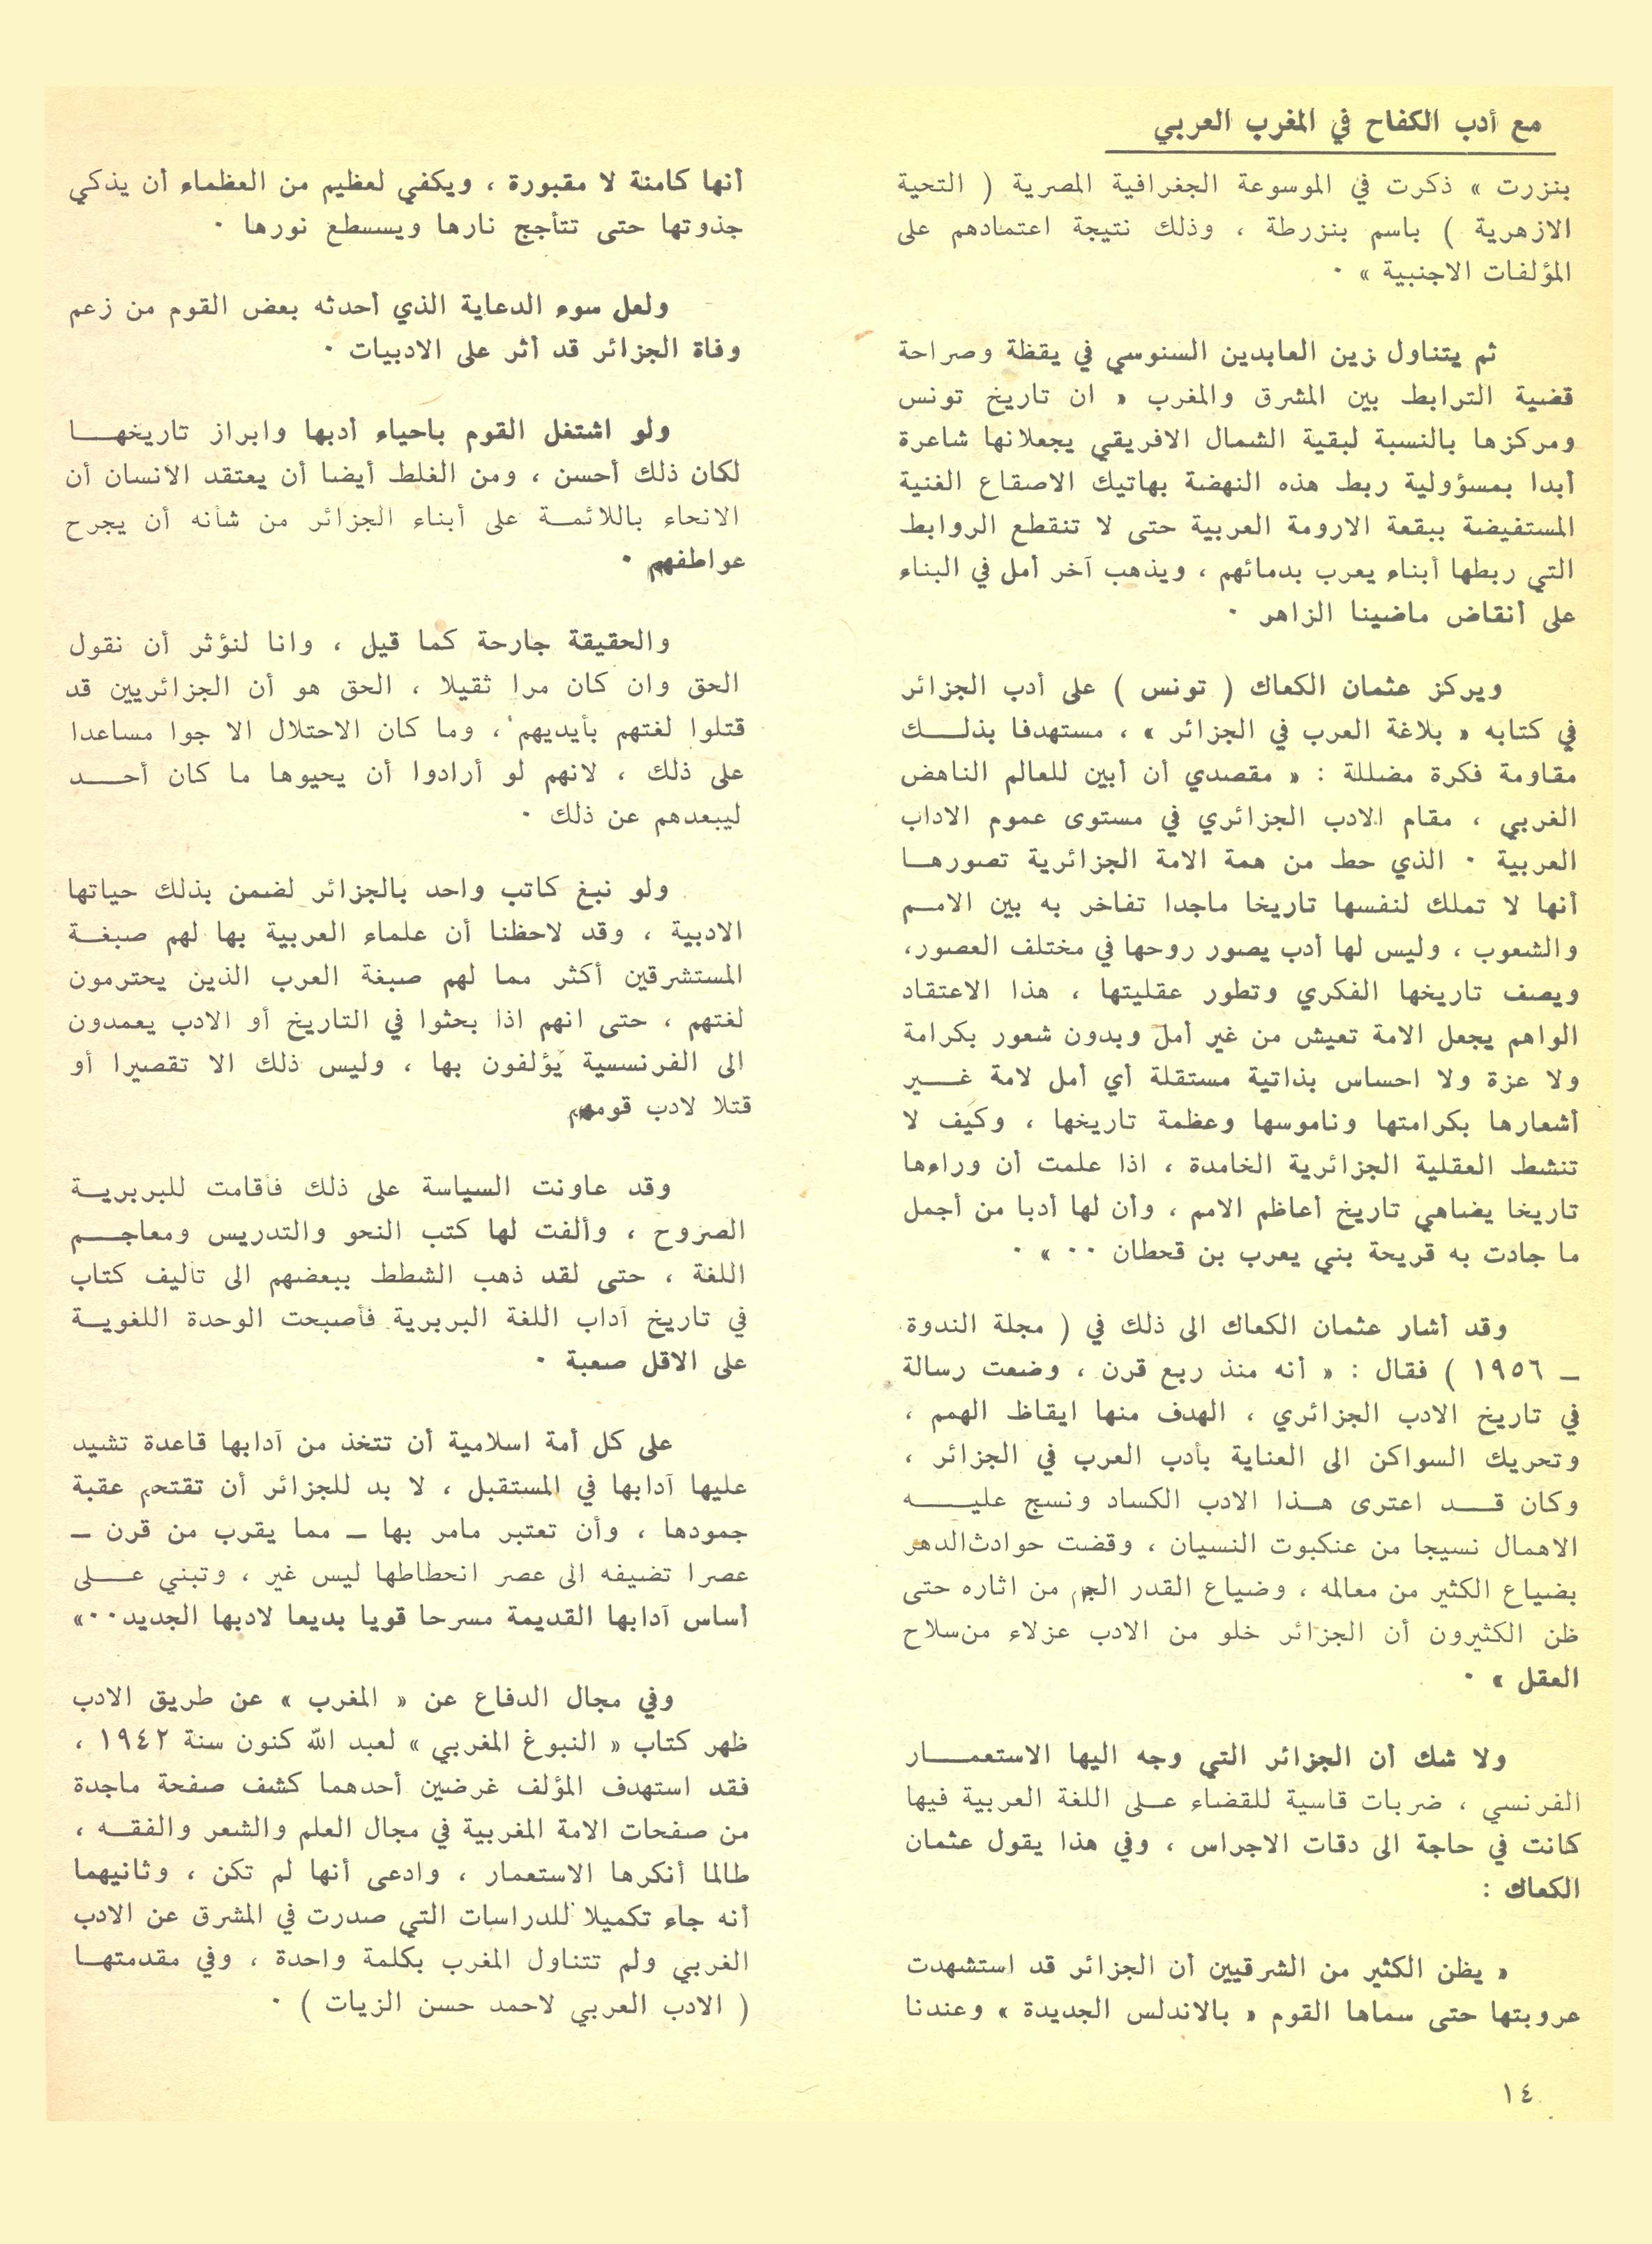 مع أدب الكفاح في المغرب العربي
بنزرت » ذكرت في الموسوعة الجغرافية المصرية ( التحية
الازهرية ) باسم بنزرطة ، وذلك نتيجة اعتمادهم على
المؤلفات الاجنبية » .
ثم يتناول زين العابدين السنوسي في يقظة وصراحة
قضية الترابط بين المشرق والمغرب « ان تاريخ تونس
ومركزها بالنسبة لبقية الشمال الافريقي يجعلانها شاعرة
أبدا بمسؤولية ربط هذه النهضة بهاتيك الاصقاع الغنية
المستفيضة ببقعة الارومة العربية حتى لا تنقطع الروابط
التي ربطها أبناء يعرب بدمائهم ، ويذهب آخر أمل في البناء
على أنقاض ماضينا الزاهر .
ويركز عثمان الكعاك ( تونس ) على أدب الجزائر
في كتابه « بلاغة العرب في الجزائر » ، مستهدفا بذلك
مقاومة فكرة مضللة : « مقصدي أن أبين للعالم الناهض
الغربي ، مقام الادب الجزائري في مستوى عموم الاداب
العربية . الذي حط من همة الامة الجزائرية تصورها
أنها لا تملك لنفسها تاريخا ماجدا تفاخر به بين الامم
والشعوب ، وليس لها أدب يصور روحها في مختلف العصور،
ويصف تاريخها الفكري وتطور عقليتها ، هذا الاعتقاد
الواهم يجعل الامة تعيش من غير أمل وبدون شعور بكرامة
ولا عزة ولا احساس بذاتية مستقلة أي أمل لامة غير
أشعارها بكرامتها وناموسها وعظمة تاريخها ، وكيف لا
تنشط العقلية الجزائرية الخامدة ، اذا علمت أن وراءها
تاريخا يضاهي تاريخ أعاظم الامم ، وأن لها أدبا من أجمل
ما جادت به قريحة بني يعرب بن قحطان .. » .
وقد أشار عثمان الكعاك الى ذلك في ( مجلة الندوة
ـ ١٩٥٦ ) فقال : « أنه منذ ربع قرن ، وضعت رسالة
في تاريخ الادب الجزائري ، الهدف منها ايقاظ الهمم ،
وتحريك السواكن الى العناية بأدب العرب في الجزائر ،
وكان قد اعترى هذا الادب الكساد ونسج عليه
الاهمال نسيجا من عنكبوت النسيان ، وقضت حوادث الدهر
بضياع الكثير من معالمه ، وضياع القدر الجم من اثاره حتى
ظن الكثيرون أن الجزائر خلو من الادب عزلاء من سلاح
العقل » .
ولا شك أن الجزائر التي وجه اليها الاستعمار
الفرنسي ، ضربات قاسية للقضاء على اللغة العربية فيها
كانت في حاجة الى دقات الاجراس ، وفي هذا يقول عثمان
الكعاك :
« يظن الكثير من الشرقيين أن الجزائر قد استشهدت
عروبتها حتى سماها القوم « بالاندلس الجديدة » وعندنا
أنها كامنة لا مقبورة ، ويكفي لعظيم من العظماء أن يذكي
جذوتها حتى تتأجج نارها ويسطع نورها .
ولعل سوء الدعاية الذي أحدثه بعض القوم من زعم
وفاة الجزائر قد أثر على الادبيات .
ولو اشتغل القوم باحياء أدبها وابراز تاريخها
لكان ذلك أحسن ، ومن الغلط أيضا أن يعتقد الانسان أن
الانحاء باللائمة على أبناء الجزائر من شأنه أن يجرح
عواطفهم .
والحقيقة جارحة كما قيل ، وانا لنؤثر أن نقول
الحق وان كان مرا ثقيلا ، الحق هو أن الجزائريين قد
قتلوا لغتهم بأيديهم ، وما كان الاحتلال الا جوا مساعدا
على ذلك ، لانهم لو أرادوا أن يحيوها ما كان أحد
ليبعدهم عن ذلك .
ولو نبغ كاتب واحد بالجزائر لضمن بذلك حياتها
الادبية ، وقد لاحظنا أن علماء العربية بها لهم صبغة
المستشرقين أكثر مما لهم صبغة العرب الذين يحترمون
لغتهم ، حتى انهم اذا بحثوا في التاريخ أو الادب يعمدون
الى الفرنسسية يؤلفون بها ، وليس ذلك الا تقصيرا أو
قتلا لادب قومهم
وقد عاونت السياسة على ذلك فأقامت للبربرية
الصروح ، وألفت لها كتب النحو والتدريس ومعاجم
اللغة ، حتى لقد ذهب الشطط ببعضهم الى تأليف كتاب
في تاريخ آداب اللغة البربرية فأصبحت الوحدة اللغوية
على الاقل صعبة .
على كل أمة اسلامية أن تتخذ من آدابها قاعدة تشيد
عليها آدابها في المستقبل ، لا بد للجزائر أن تقتحم عقبة
جمودها ، وأن تعتبر مامر بها ـ مما يقرب من قرن ـ
عصرا تضيفه الى عصر انحطاطها ليس غير ، وتبني على
أساس آدابها القديمة مسرحا قويا بديعا لادبها الجديد .. »
وفي مجال الدفاع عن « المغرب » عن طريق الادب
ظهر كتاب « النبوغ المغربي » لعبد الله كنون سنة ١٩٤٢ ،
فقد استهدف المؤلف غرضين أحدهما كشف صفحة ماجدة
من صفحات الامة المغربية في مجال العلم والشعر والفقه ،
طالما أنكرها الاستعمار ، وادعى أنها لم تكن ، وثانيهما
أنه جاء تكميلا للدراسات التي صدرت في المشرق عن الادب
الغربي ولم تتناول المغرب بكلمة واحدة ، وفي مقدمتها
( الادب العربي لاحمد حسن الزيات ) .
١٤